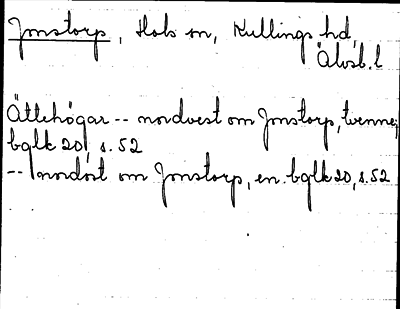 Jonstorp, Hols sn, Kullings hd,
Älvsb. l
Ättehögar -- nordvest om Jonstorp, tvenne;
bglk 20, s. 52
-- nordost om Jonstorp, en. bglk 20, s. 52